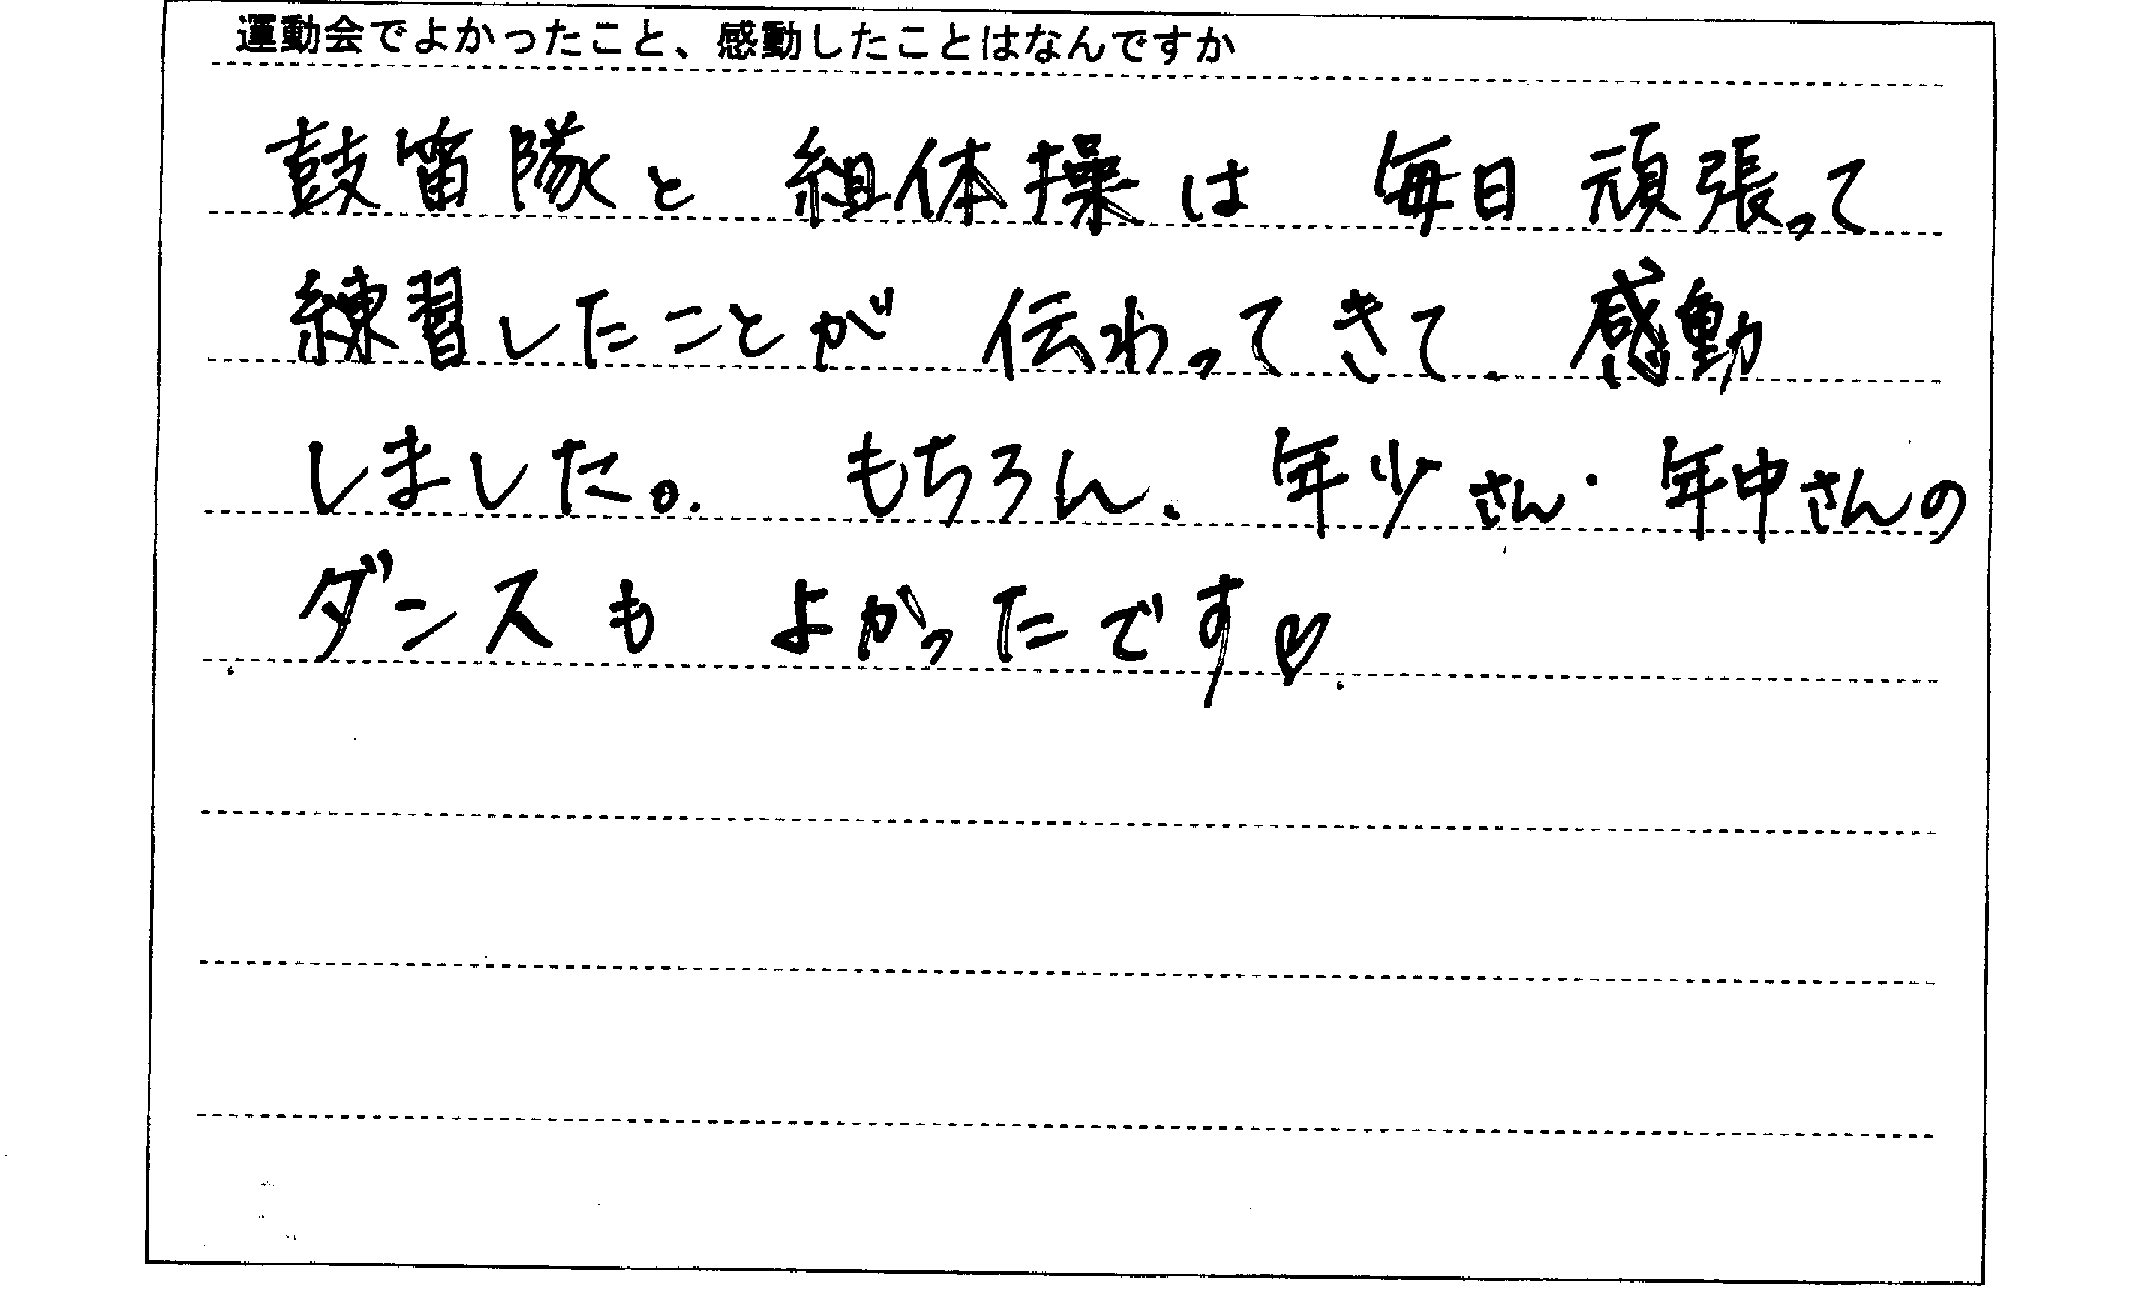 運動会でよかったこと、感動したことはなんですか
鼓笛隊と 組体操は 毎日 頑張って
練習したことが 伝わってきて、感動
しました。 もちろん、年少さん・年中さんの
ダンスも よかったです♡